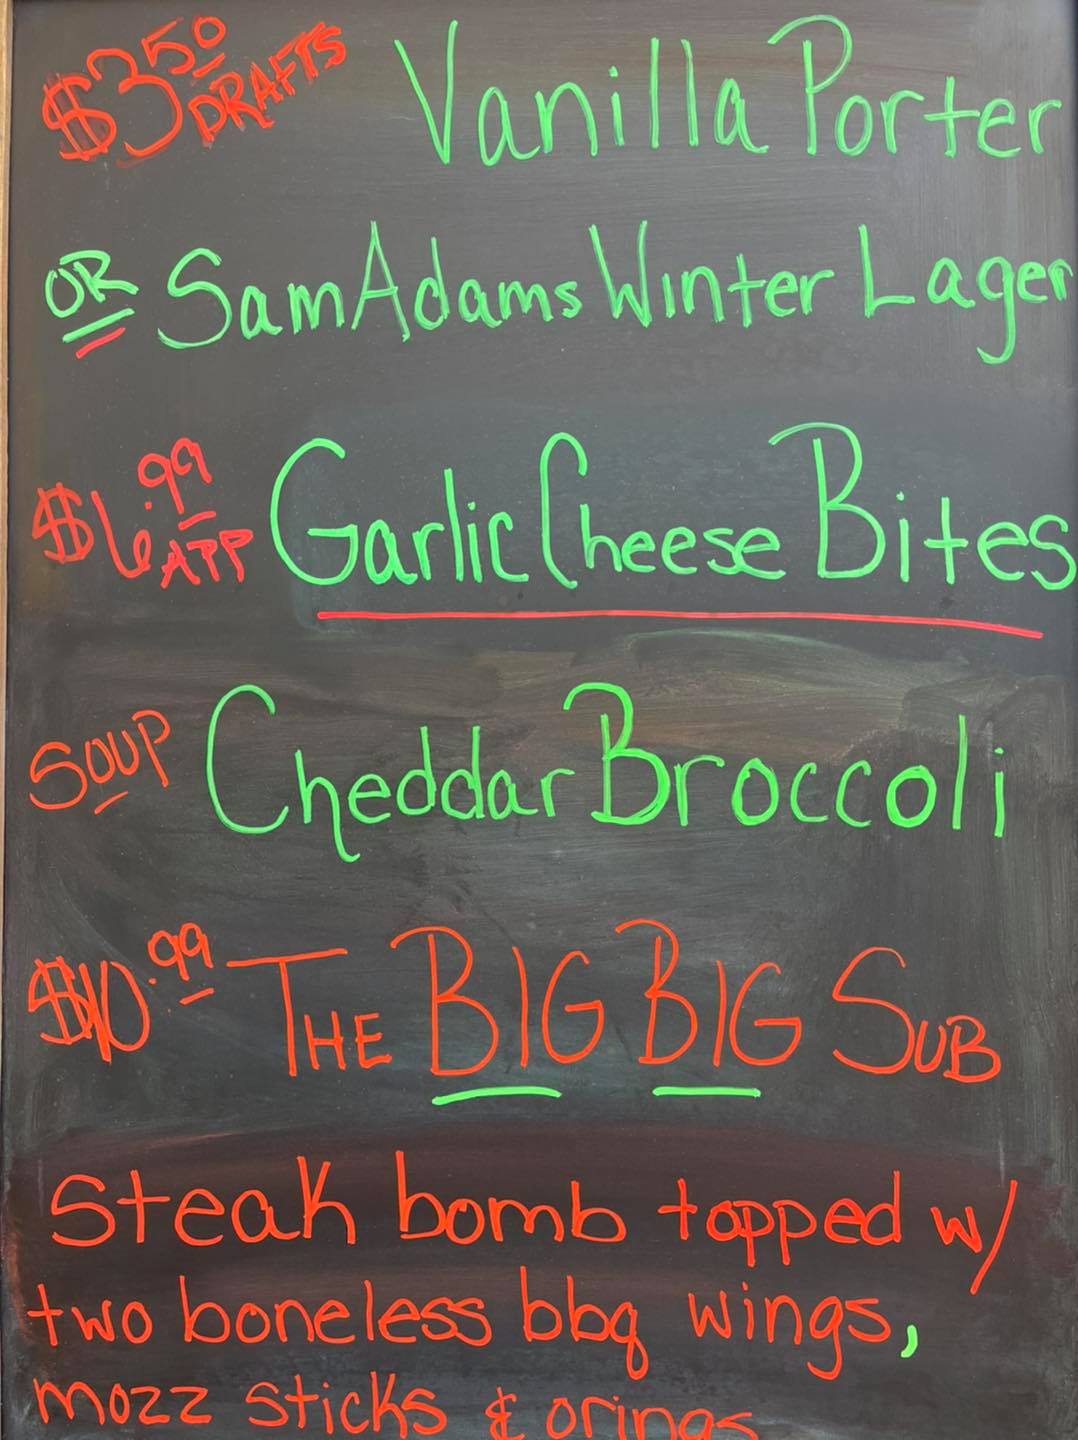 $3.50 DRAFTS Vanilla Porter
OR Sam Adams Winter Lager
$6.99 APP Garlic Cheese Bites
SOUP Cheddar Broccoli
$10.99 THE BIG BIG SUB
steak bomb topped w/
two boneless bbq wings,
mozz sticks & orings